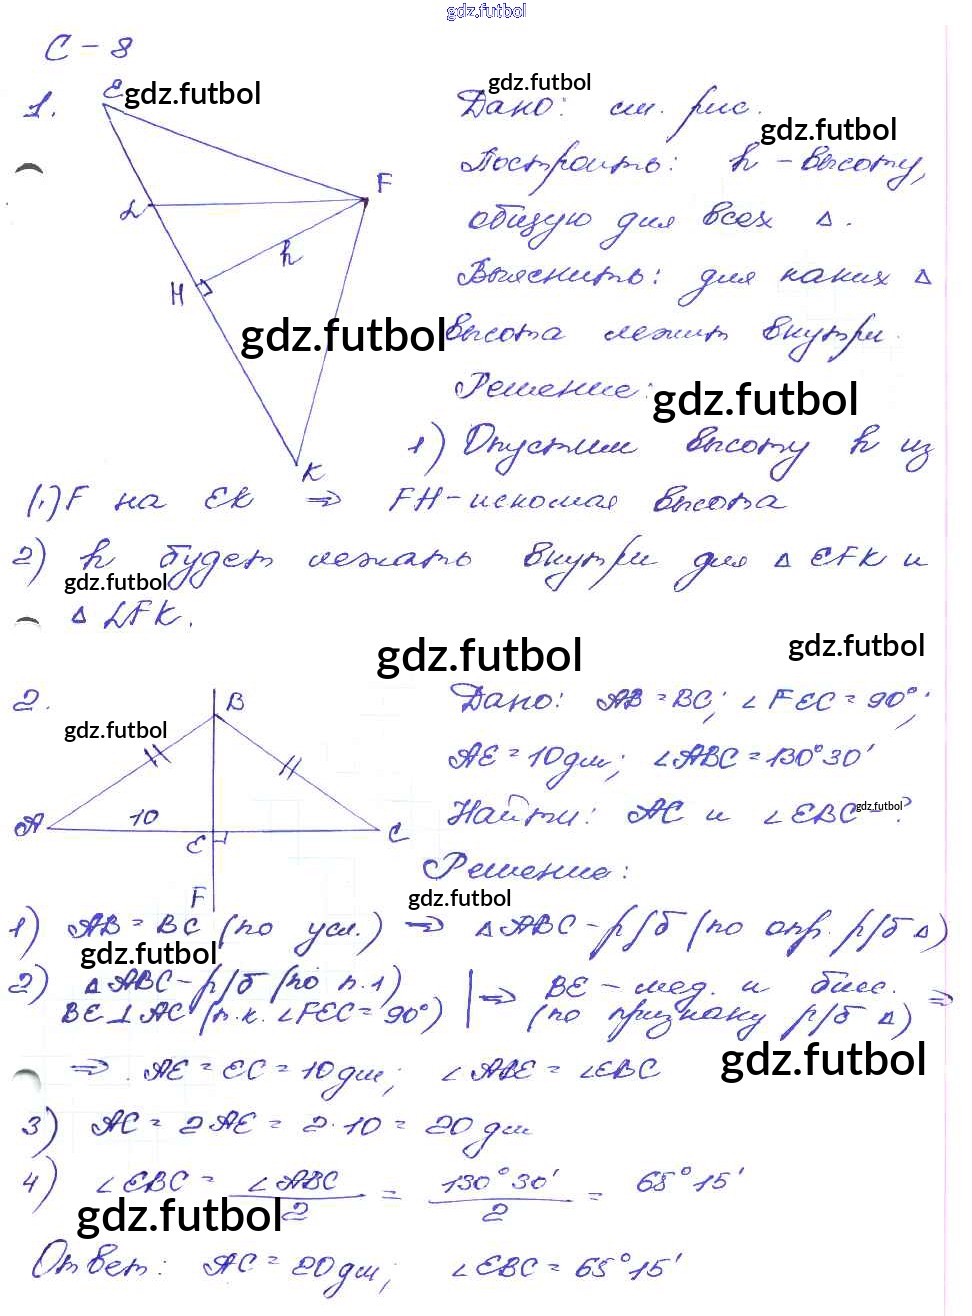 gdz.futbol
С - 8
1.
E
gdz.futbol
gdz.futbol
Дано: см. рис.
gdz.futbol
Построить: h - высоту,
F
L
общую для всех Δ.
h
H
Выяснить: для каких Δ
gdz.futbol
высота лежит внутри.
Решение:
gdz.futbol
K
1) Опустим высоту h из
(.) F на EK ⇒ FH - искомая высота
2) h будет лежать внутри для Δ EFK и
gdz.futbol
Δ LFK.
gdz.futbol
gdz.futbol
2.
B
Дано: AB = BC; ∠FEC = 90°;
gdz.futbol
AE = 10 дм; ∠ABC = 130°30'
A
10
E
C
Найти: AC и ∠EBC - ?
gdz.futbol
F
Решение:
gdz.futbol
1) AB = BC (по усл.) ⇒ Δ ABC - р/б (по опр. р/б Δ)
gdz.futbol
2) Δ ABC - р/б (по п. 1) | ⇒ BE - мед. и бисс. ⇒
BE ⊥ AC (т.к. ∠FEC = 90°) | (по признаку р/б Δ)
gdz.futbol
⇒ AE = EC = 10 дм; ∠ABE = ∠EBC
3) AC = 2AE = 2·10 = 20 дм
4) ∠EBC = ∠ABC/2 = 130°30'/2 = 65°15'
gdz.futbol
Ответ: AC = 20 дм; ∠EBC = 65°15'